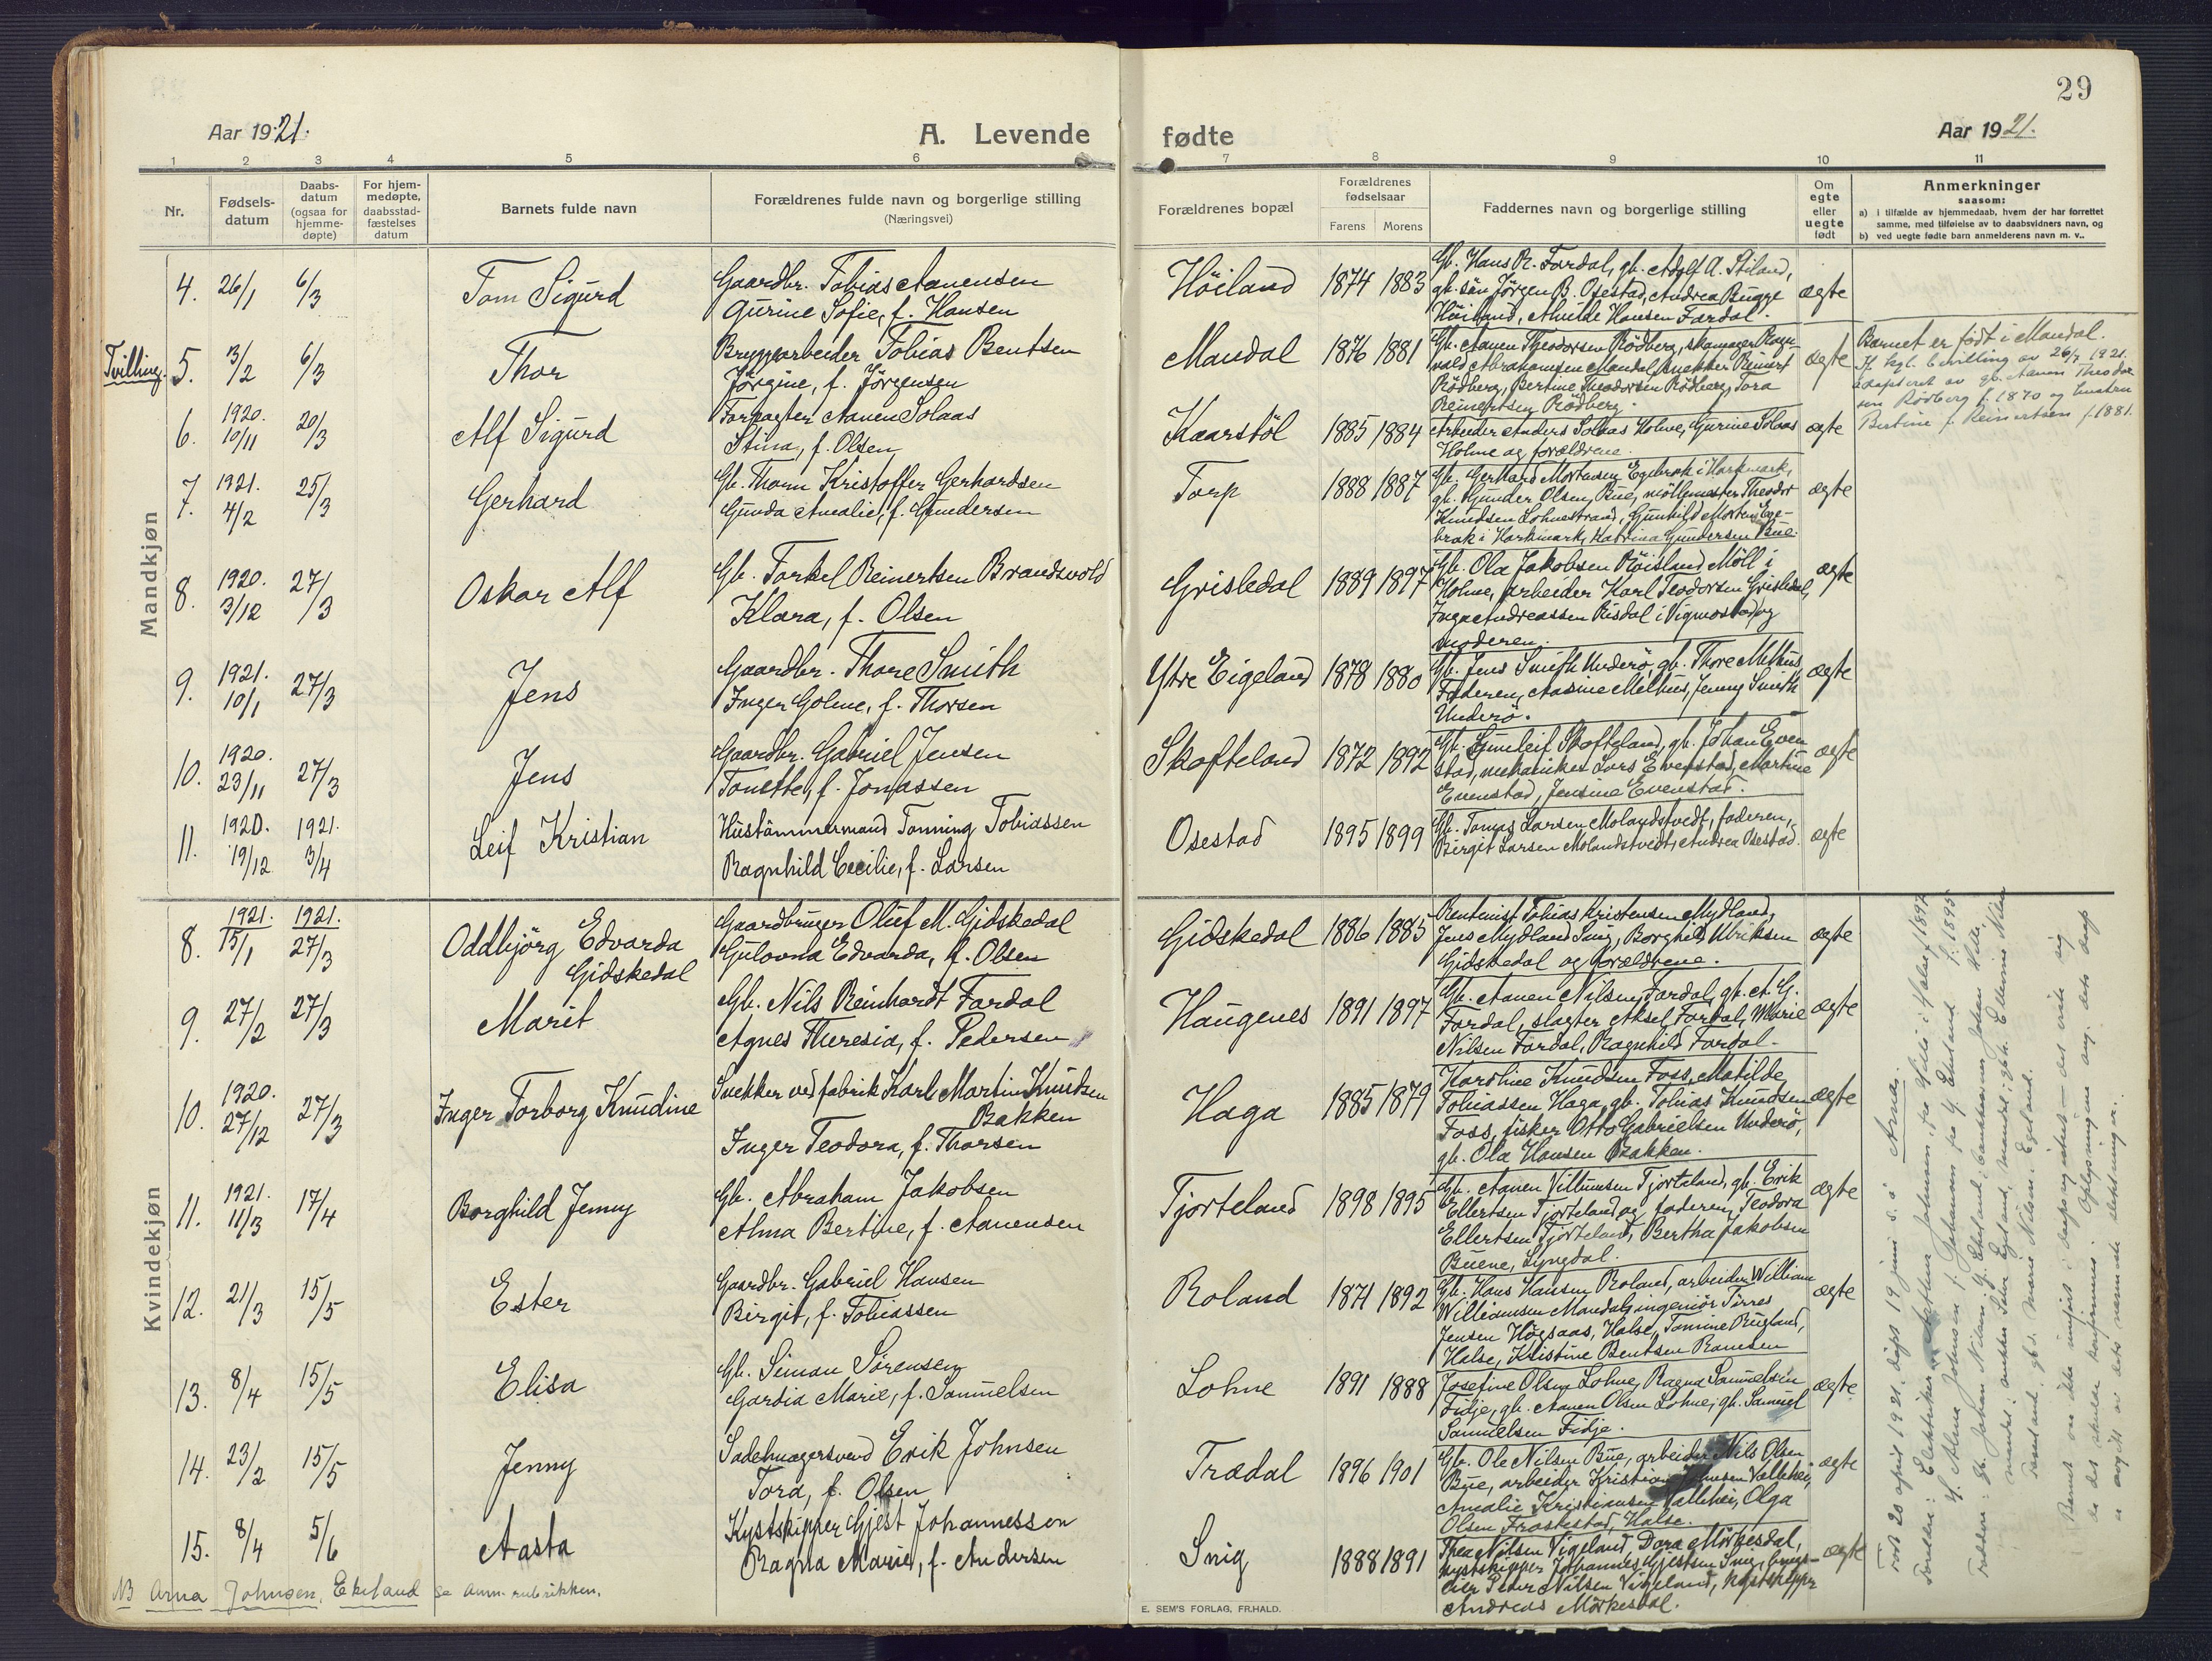 29
Aar 1921.
A. Levende fødte
Aar 1921.
1 2 3 4 5 6 7 8 9 10 11
Nr.
Fødsels-
datum
Daabs-
datum
(ogsaa for
hjemme-
døpte)
For hjem-
medøpte,
daabsstad-
fæstelses
datum
Barnets fulde navn
Forældrenes fulde navn og borgerlige stilling
(Næringsvei)
Forældrenes bopæl
Forældrenes
fødselsaar
Farens Morens
Faddernes navn og borgerlige stilling
Om
egte
eller
uegte
født
Anmerkninger
saasom:
a) i tilfælde av hjemmedaab, hvem der har forrettet
samme, med tilføielse av to daabsvidners navn, og
b) ved uegte fødte barn anmelderens navn m. v..
Mandkjøn
4. 26/1 6/3 Tom Sigurd
Gaardbr. Tobias Aanensen
Gurine Sofie, f. Hansen
Höiland 1874 1883
Gb. Hans R. Fardal, gb. Adolf A. Stiland,
gb. sön Jörgen B. Osestad, Andrea Bugge
Höiland, Alvilde Hansen Fardal.
ægte
Tvilling. 5. 3/2 6/3 Thor
Bryggearbeider Tobias Bentsen
Jörgine, f. Jörgensen
Mandal 1876 1881
Gb. Aanen Theodorsen Rödberg, skomager Ragn-
vald Abrahamsen Mandal, snekker Reinert
Rödberg, Bertine Theodorsen Rödberg, Tora
Reinertsen Rödberg.
ægte
Barnet er født i Mandal.
If. kgl. bevilling av 26/7 1921
adoptert av gb. Aanen Theodor
sen Rödberg f. 1870 og hustru
Bertine f. Reinertsen f. 1881.
6. 1920. 10/11 20/3 Alf Sigurd
Forpagter Aanen Solaas
Stina, f. Olsen
Kaarstöl 1885 1884
Arbeider Anders Solaas Holme, Gurine Solaas
Holme og forældrene.
ægte
7. 1921. 4/2 25/3 Gerhard
Gb. Thom Kristoffer Gerhardsen
Gunda Amalie, f. Gundersen
Torp 1888 1887
Gb. Gerhard Mortensen Egebrok i Harkmark,
gb. Gunder Olsen Bue, möllemester Theodor
Knudsen Lohnestrand, Gunhild Mortensen Ege-
brok i Harkmark, Katrina Gundersen Bue.
ægte
8. 1920. 3/12 27/3 Oskar Alf
Gb. Torkel Reinertsen Brandsvold
Klara, f. Olsen
Grisledal 1889 1897
Gb. Ola Jakobsen Röisland Möll i
Holme, arbeider Karl Teodorsen Grisledal,
Inga Andreassen Risdal i Vigmostad og
moderen.
ægte
9. 1921. 10/1 27/3 Jens
Gaardbr. Thore Smith
Inger Golene, f. Thorsen
Ytre Eigeland 1878 1880
Gb. Jens Smith Underö, gb. Thore Melhus,
Faderen, Aasine Melhus, Jenny Smith
Underö.
ægte
10. 1920. 23/11 27/3 Jens
Gaardbr. Gabriel Jensen
Tonette, f. Jonassen
Skofteland 1872 1892
Gb. Gunleif Skofteland, gb. Johan Even
stad, mekaniker Lars Evenstad, Martine
Evenstad, Jensine Evenstad.
ægte
11. 1920. 19/12 1921. 3/4 Leif Kristian
Hustömmermand Tønning Tobiassen
Ragnhild Cecilie, f. Larsen
Osestad 1895 1899
Gb. Tomas Larsen Molandstvedt, faderen,
Birgit Larsen Molandstvedt, Andrea Osestad.
ægte
Kvindekjøn
8. 1921. 15/1 1921. 27/3 Oddbjörg Edvarda
Gidskedal
Gaardbruger Oluf M. Gidskedal
Gulovna Edvarda, f. Olsen
Gidskedal 1886 1885
Rentenist Tobias Kristensen Mydland,
Jens Mydland Snig, Borghild Ulriksen
Gidskedal og forældrene.
ægte
9. 27/2 27/3 Marit
Gb. Nils Reinhardt Fardal
Agnes Theresia, f. Pedersen
Haugenes 1891 1897
Gb. Aanen Nilsen Fardal, gb. A. G.
Fardal, slagter Aksel Fardal, Marie
Nilsen Fardal, Ragnhild Fardal.
ægte
10. 1920. 27/12 27/3 Inger Torborg Knudine
Snekker ved fabrik Karl Martin Knudsen
Bakken
Inger Teodora, f. Thorsen
Haga 1885 1879
Karoline Knudsen Foss, Matilde
Tobiassen Haga, gb. Tobias Knudsen
Foss, fisker Otto Gabrielsen Underö,
gb. Ola Hansen Bakken.
ægte
11. 1921. 11/3 17/4 Borghild Jenny
Gb. Abraham Jakobsen
Alma Bertine, f. Aanensen
Tjorteland 1898 1895
Gb. Aanen Villumsen Tjorteland, gb. Erik
Ellertsen Tjorteland og faderen, Teodora
Ellertsen Tjorteland, Bertha Jakobsen
Buene, Lyngdal.
ægte
12. 21/3 15/5 Ester
Gaardbr. Gabriel Hansen
Birgit, f. Tobiassen
Roland 1871 1892
Gb. Hans Hansen Roland, arbeider William
Williamsen Mandal, ingeniör Törres
Jensen Högsaas, Halse, Tomine Rugland,
Halse, Kristine Bentsen Ramsen
ægte
13. 8/4 15/5 Elisa
Gb. Simon Sörensen
Gardia Marie, f. Samuelsen
Lohne 1891 1888
Josefine Olsen Lohne, Ragna Samuelsen
Fidje, gb. Aanen Olsen Lohne, gb. Samuel
Samuelsen Fidje.
ægte
14. 23/2 15/5 Jenny
Sadelmagersvend Erik Johnsen
Tora, f. Olsen
Trædal 1896 1901
Gb. Ole Nilsen Bue, arbeider Nils Olsen
Bue, arbeider Kristian Johnsen Vallehei,
Amalie Kristiansen Vallehei, Olga
Olsen Frostestad, Halse.
ægte
15. 8/4 5/6 Aasta
Kystskipper Gjest Johannessen
Ragna Marie, f. Andersen
Snig 1888 1891
Thea Nilsen Vigeland, Dora Mörkesdal,
kystskipper Johannes Gjestsen Snig,
Peder Nilsen Vigeland, kystskipper
Andreas Mörkesdal.
ægte
NB Arna Johnsen, Ekeland se anm. rubrikken.
Född 20 april 1921. døpt 19 juni s. å. Arna.
Foreldre: Elektriker Johnsen fra Helle i Halse f. 1892
Alma Johnsen f. Johansen fra Y. Ekeland f. 1895
Faddere: gb. Johan Nilsen Y. Ekeland,
Barnet var ikke innført i dåpsregistret — det viste sig
da det skulde konfirmeres. Oplysningene ang. dets dåp
er avgitt av dets nærmeste slektninger.
E. SEM'S FORLAG, FR.HALD.